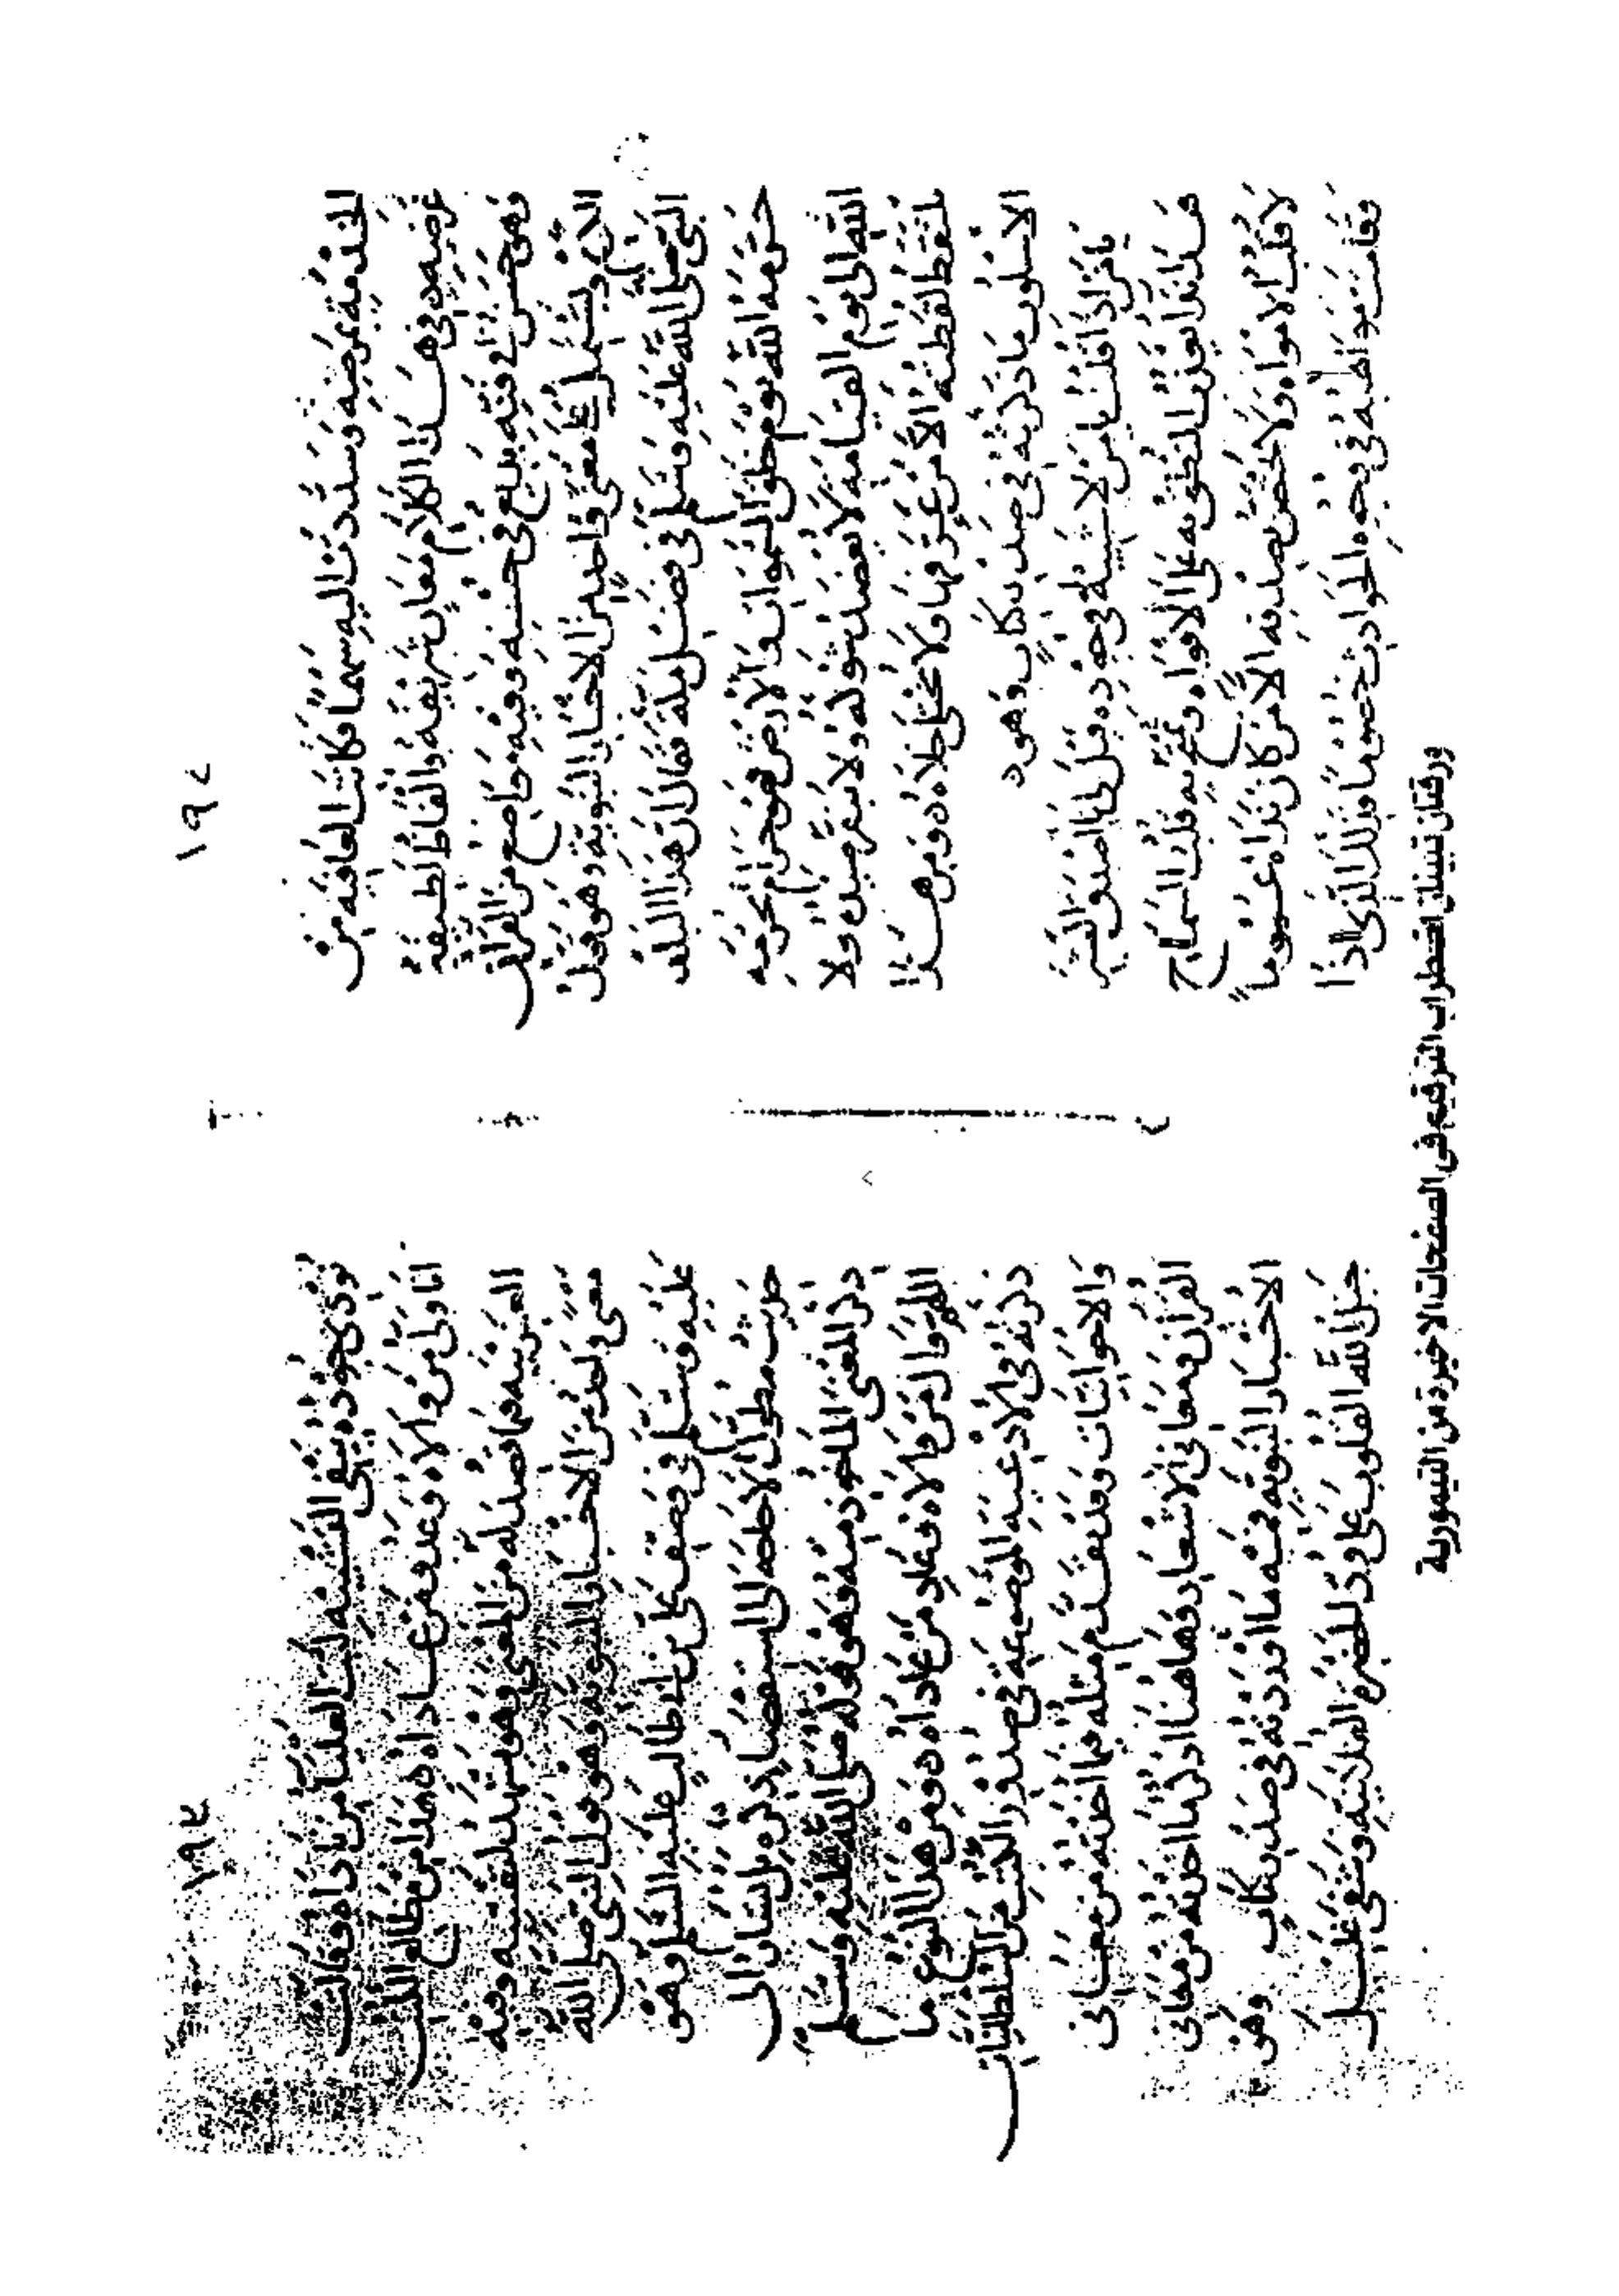 ١٩٢
الخدمة بمرضيه وسددت اليه سهما وكانت العافيه من
غرضيه وفي هذا الكلام معان شريفة والفاظ لطيفة
فهو حسن في فنه بليغ في حسنه وفيه مواضع من القرآن
الا انه يشتمل على معنى واحد من الاخبار النبوية وهو قول
النبي صلى الله عليه وسلم في فضل مكة فقال ان هذا البلد
حرمه الله يوم خلق السموات والارض فهو حرام بحرمة
الله الى يوم القيامة لا يعضد شوكه ولا ينفر صيده ولا
يلتقط لقطته الا من عرفها ولا يختلى خلاه ومن هذا
الاسلوب ما ذكرته في صدر كتاب وهو
يا من اذا قلت يا من لا شبيه له في جوده
هذا على الافواه قلب السماح
لا قلب الامواه ولا الا من كان نداه عموما
وقامت مواهبه في وجوه الحوادث خصوما فذلك الذي اذا
١٩٤
نودي جوده بنفي التشبيه لبت العليا من ناداه وقالت
انا ولي من والاه وعدو من عاداه هذا من مطالع الكتب
الغريبة من المعنى وهو يشهد لنفسه وفيه
معنى واحد من الاخبار النبوية وهو قول النبي صلى الله
عليه وسلم في حق علي بن ابي طالب عليه السلم وهو
حديث مطول لا حاجة الى استقصاء ذكره بل اشارة الى
ذكر المعنى الماخوذ منه وهو قوله صلى الله عليه وسلم
اللهم وال من والاه وعاد من عاداه ومن هذا النوع ما
ذكرته في الادعية الموضوعة في صدور الكتب من السلطانيات
والاخوانيات وقد تقدم مثله فيما اخذته من معاني
القرآن ومعاني الاشعار وهاهنا اذكر ما اخذته من معاني
الاخبار النبوية فمنه ما اوردته في صدر كتاب وهو
جبل الله القلوب على ود الحضرة الفلانية وشفى غليل
ورقتان تبينان اضطراب الترقيم في الصفحات الاخيرة من التيمورية